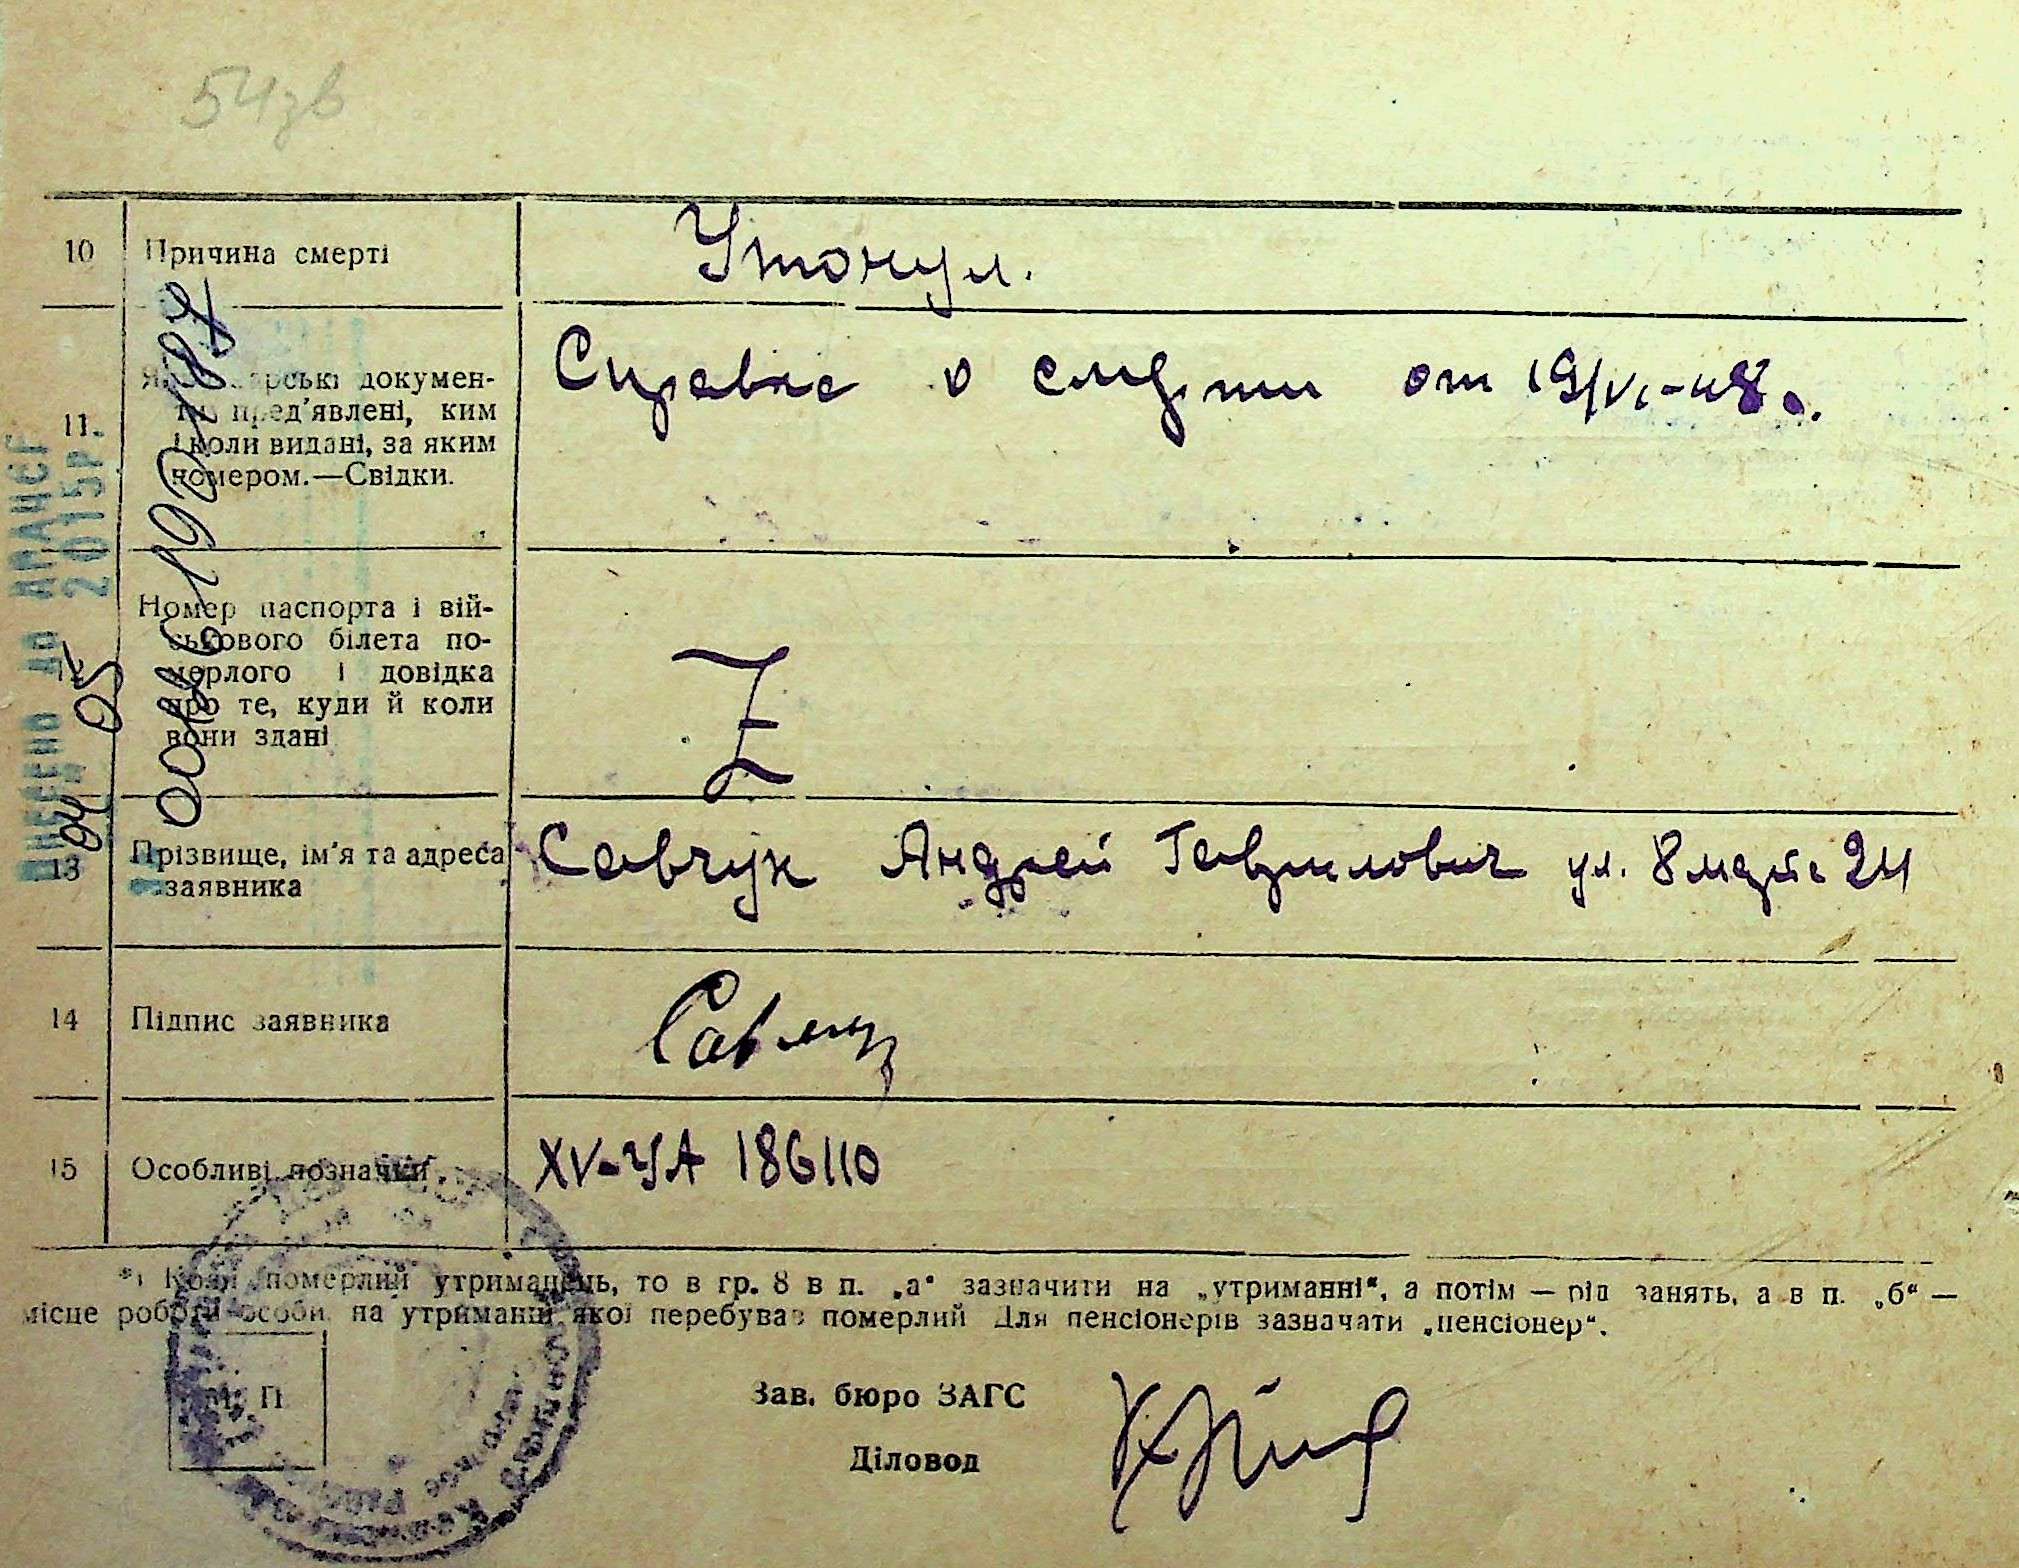 54зв
10 Причина смерті Утонул.
11. Які лікарські документи пред'явлені, ким
і коли видані, за яким
номером.—Свідки.
Справка о смерти от 19/VI-48 г.
Номер паспорта і вій-
ськового білета по-
мерлого і довідка
про те, куди й коли
вони здані
Z
13 Прізвище, ім'я та адреса
заявника
Савчук Андрей Гаврилович ул. 8 марта 24
14 Підпис заявника
15 Особливі позначки XV-УА 186110
*) Коли померлий утриманець, то в гр. 8 в п. „а“ зазначити на „утриманні“, а потім — рід занять, а в п. „б“ —
місце роботи особи, на утриманні якої перебував померлий Для пенсіонерів зазначати „пенсіонер“.
М. П
Зав. бюро ЗАГС
Діловод
ВНЕСЕНО ДО ДРАЦСГ
04 05 2015р.